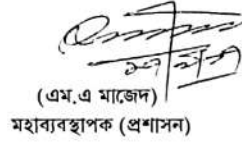 (এম.এ মাজেদ)
মহাব্যবস্থাপক (প্রশাসন)